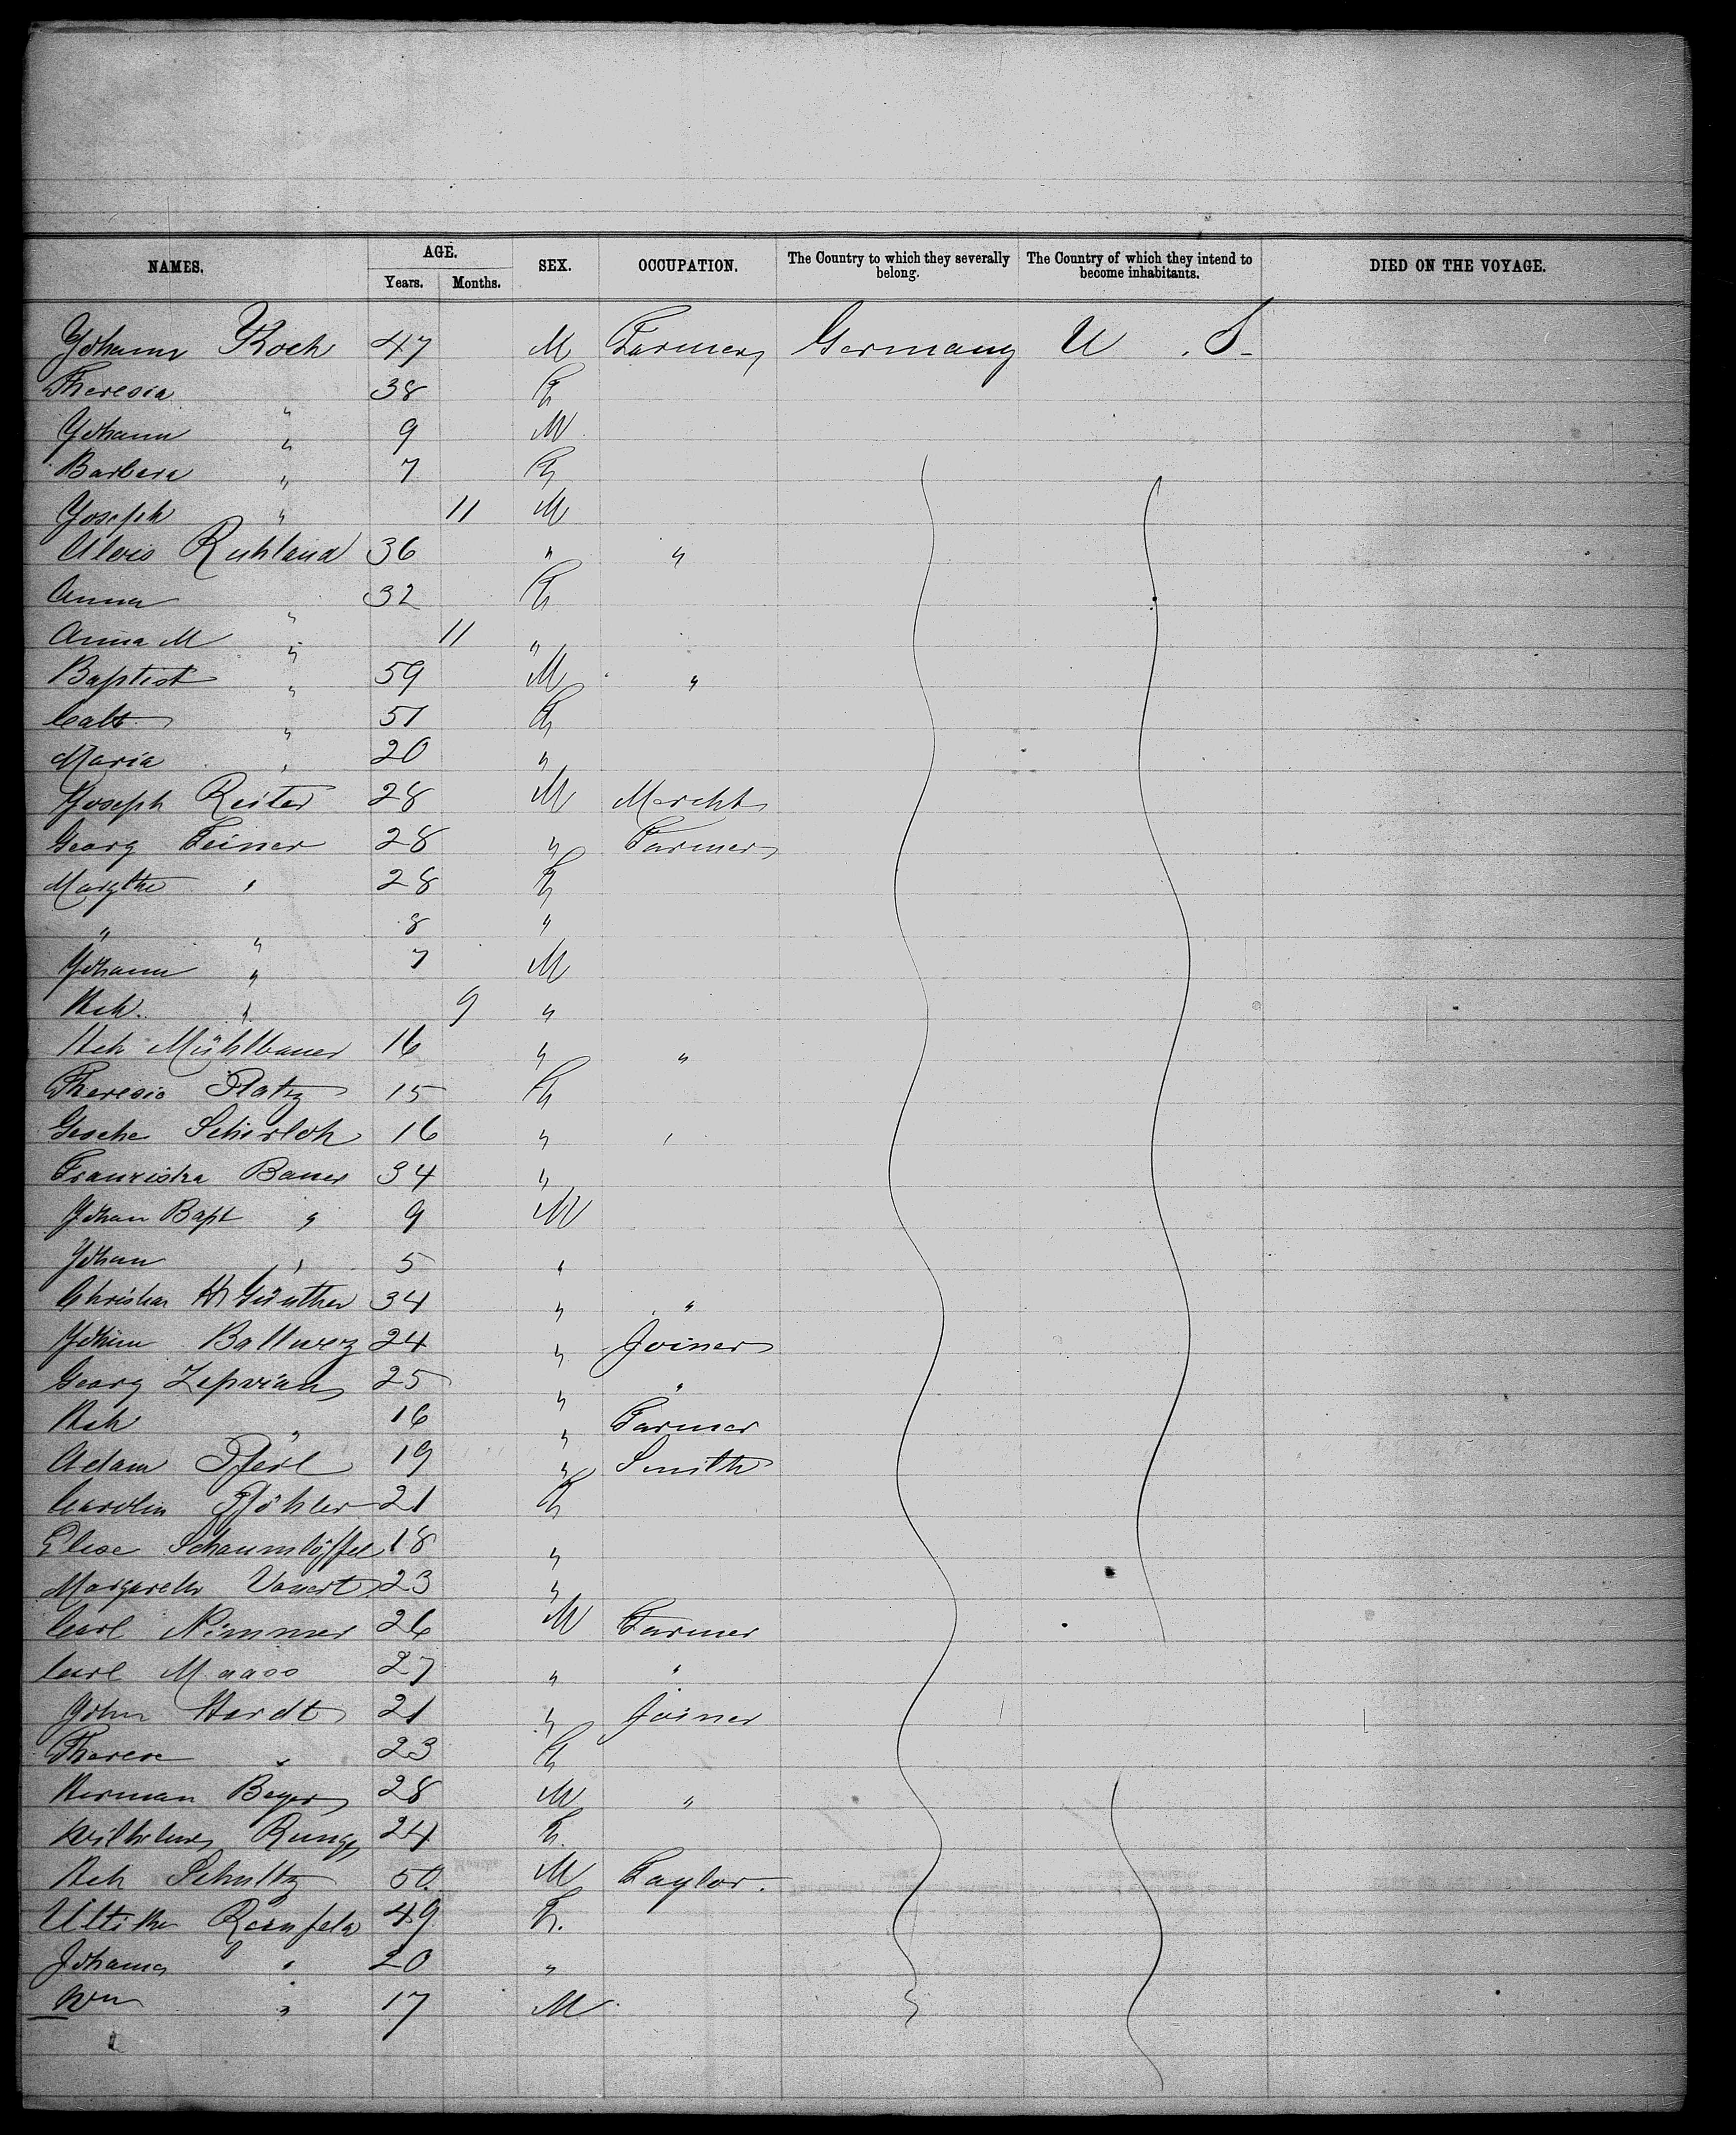 NAMES. AGE. Years. Months. SEX. OCCUPATION. The Country to which they severally belong. The Country of which they intend to become inhabitants. DIED ON THE VOYAGE.
Johann Koch 47 M Farmer Germany U. S.
Theresia " 38 F
Johann " 9 M
Barbara " 7 F
Joseph " 11 M
Alois Ruhland 36 " "
Anna " 32 F
Anna M " 11 "
Baptist " 59 M "
Cath " 51 F
Maria " 20 "
Joseph Reiter 28 M Mercht
Georg Feiner 28 " Farmer
Margthe " 28 F
" " 8 "
Johann " 7 M
Hch. " 9 "
Hch Mühlbauer 16 " "
Theresia Platz 15 F
Gesche Scherloh 16 " "
Franziska Bauer 34 "
Johan Bapt " 9 M
Johan " 5 "
Christian H Günther 34 " "
Johann Ballweg 24 " Joiner
Georg 25 " "
Hch " 16 " Farmer
Adam 19 " Smith
Carolin 21 F
Elise Schaumlöffel 18 "
Margareth 23 "
Carl Nimmer 26 M Farmer
Carl Maass 27 " "
John Hardt 21 " Joiner
Therese " 23 F
Herman Beyer 28 M "
Wilhelm Runge 24 F.
Hch Schultz 50. M Taylor.
49 F.
Johanna " 20 "
Wm " 17 M